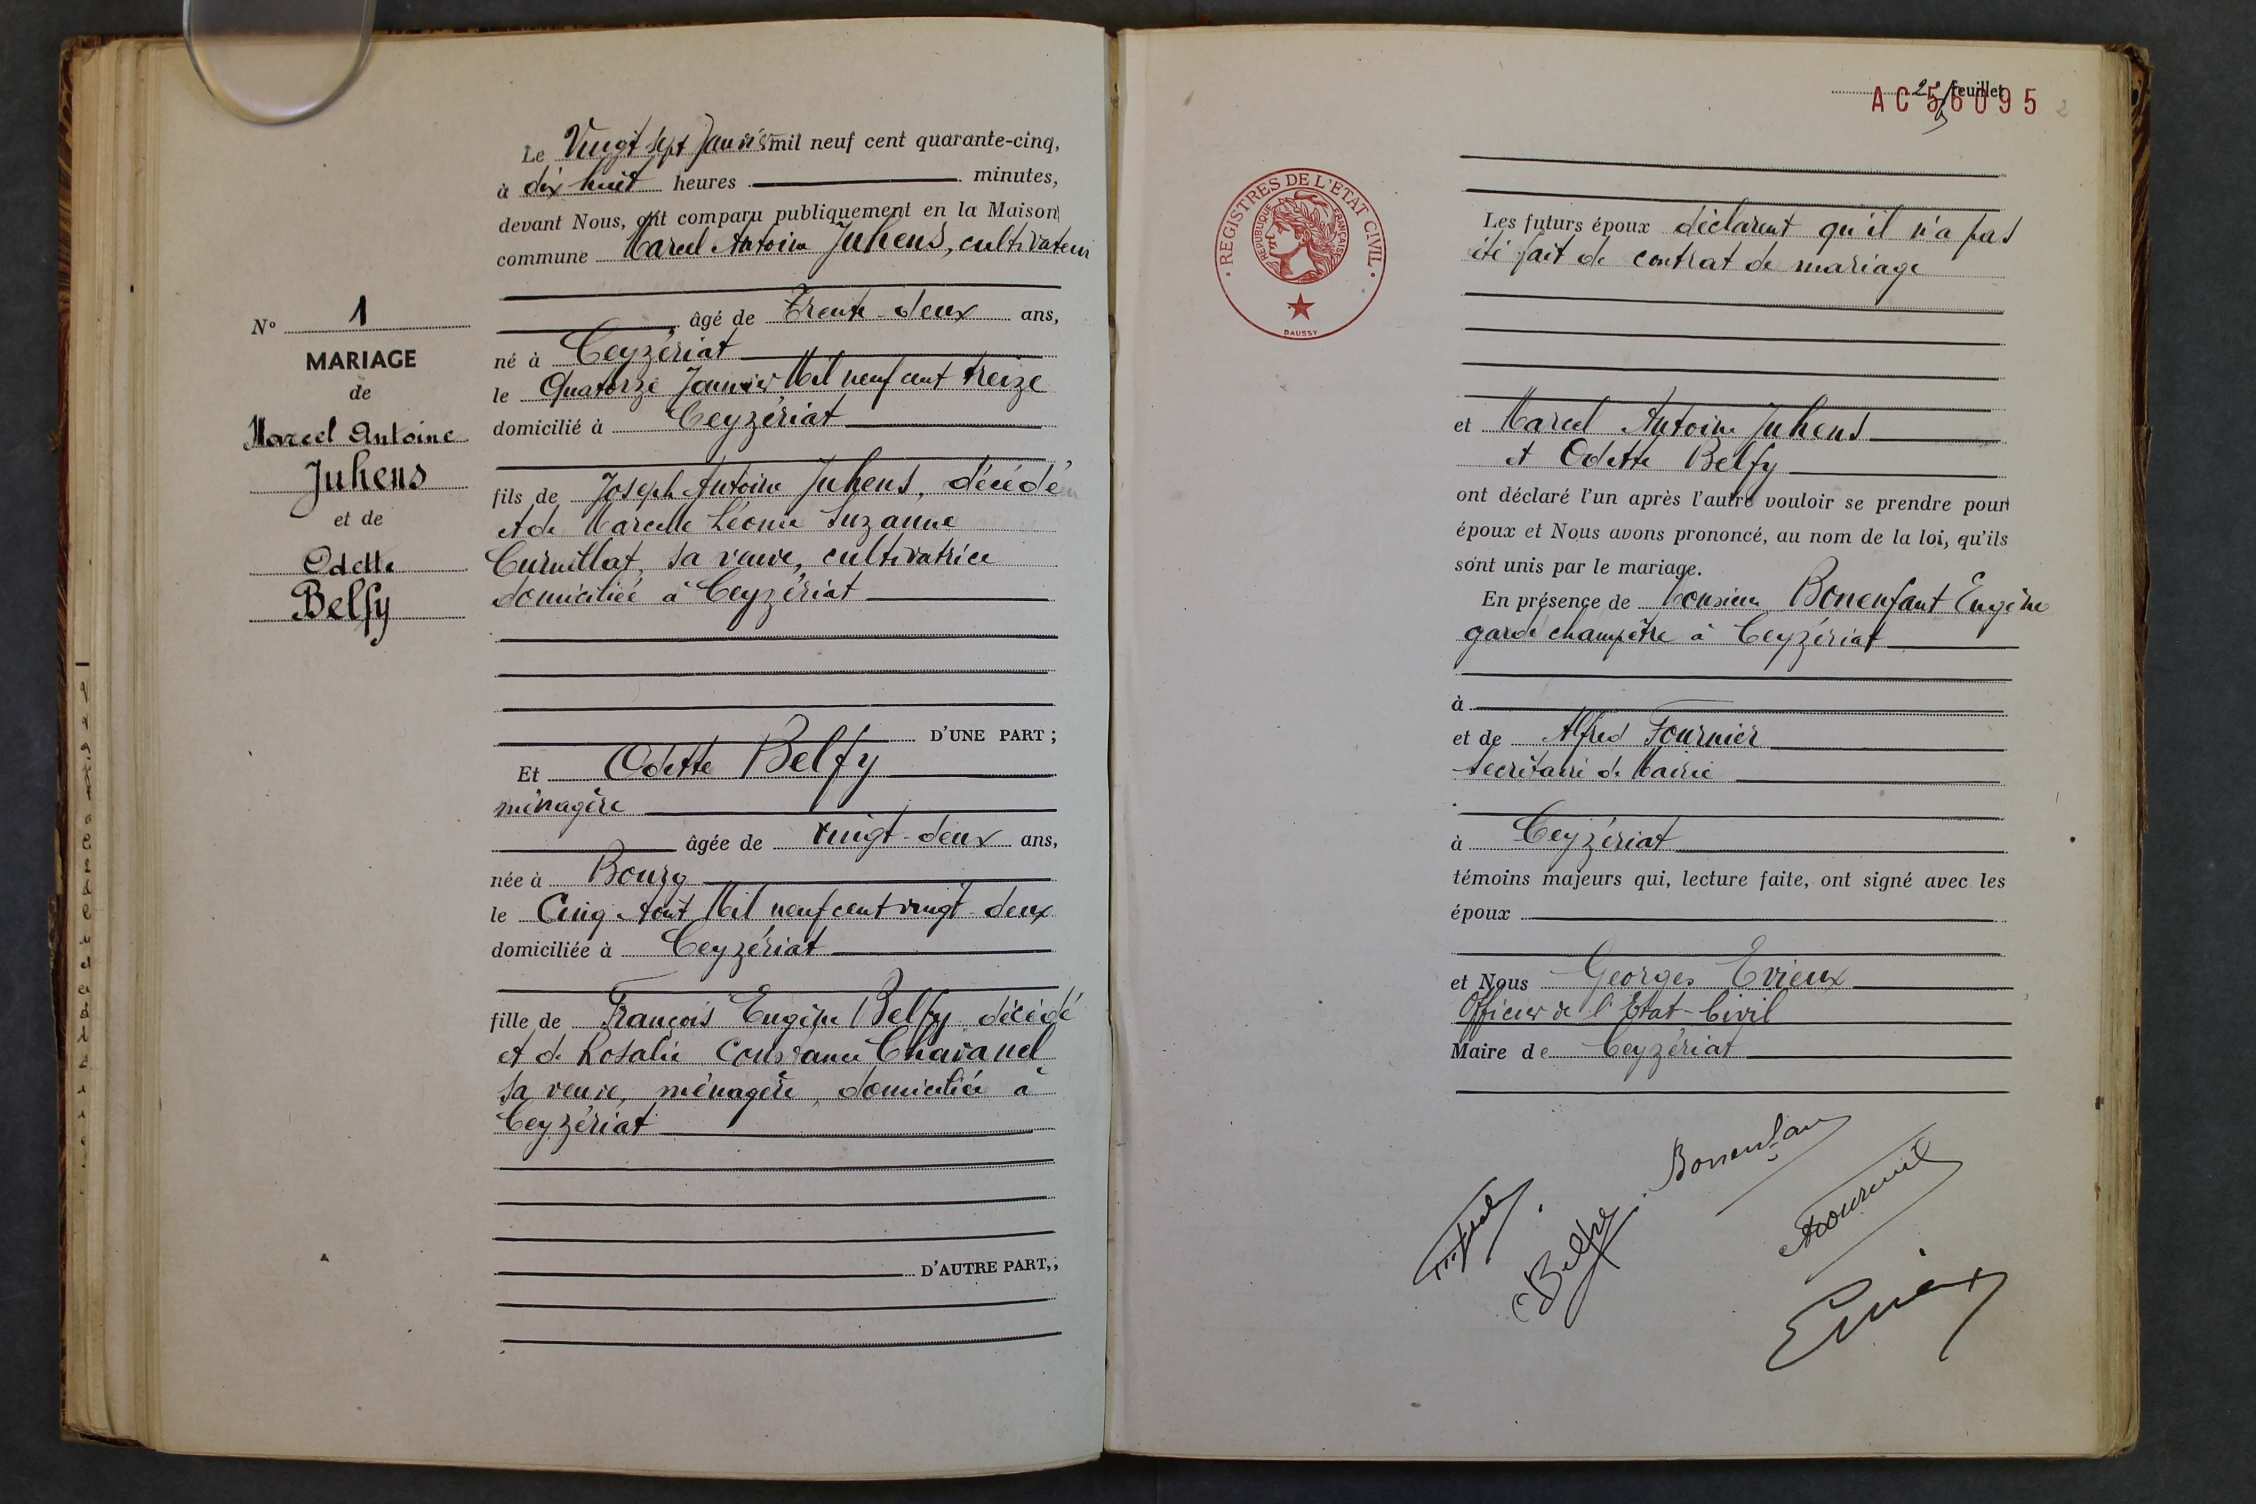 Le Vingt sept Janvier mil neuf cent quarante-cinq,
à dix huit heures minutes,
devant Nous, ont comparu publiquement en la Maison
commune Marcel Antoine Juhens, cultivateur
âgé de Trente-deux ans,
né à Ceyzériat
le Quatorze Janvier Mil neuf cent treize
domicilié à Ceyzériat
fils de Joseph Antoine Juhens, décédé
et de Marcelle Léonie Suzanne
Curnillat, sa veuve, cultivatrice
domiciliée à Ceyzériat
D'UNE PART ;
Et Odette Belfy
ménagère
âgée de vingt-deux ans,
née à Bourg
le Cinq Aout Mil neuf cent vingt-deux
domiciliée à Ceyzériat
fille de François Eugène Belfy décédé
et de Rosalie Constance Chavanel
sa veuve, ménagère, domiciliée à
Ceyzériat
D'AUTRE PART,;
N° 1
MARIAGE
de
Marcel Antoine
Juhens
et de
Odette
Belfy
feuillet
AC56095
REGISTRES DE L'ETAT CIVIL
REPUBLIQUE FRANÇAISE
DAUSSY
Les futurs époux déclarent qu'il n'a pas
été fait de contrat de mariage
et Marcel Antoine Juhens
et Odette Belfy
ont déclaré l'un après l'autre vouloir se prendre pour
époux et Nous avons prononcé, au nom de la loi, qu'ils
sont unis par le mariage.
En présence de Monsieur Bonenfant Eugène
garde champêtre à Ceyzériat
à
et de Alfred Fournier
secrétaire de Mairie
à Ceyzériat
témoins majeurs qui, lecture faite, ont signé avec les
époux
et Nous Georges Evieux
Officier de l'Etat-Civil
Maire de Ceyzériat
Belfy
Bonenfant
Evieux